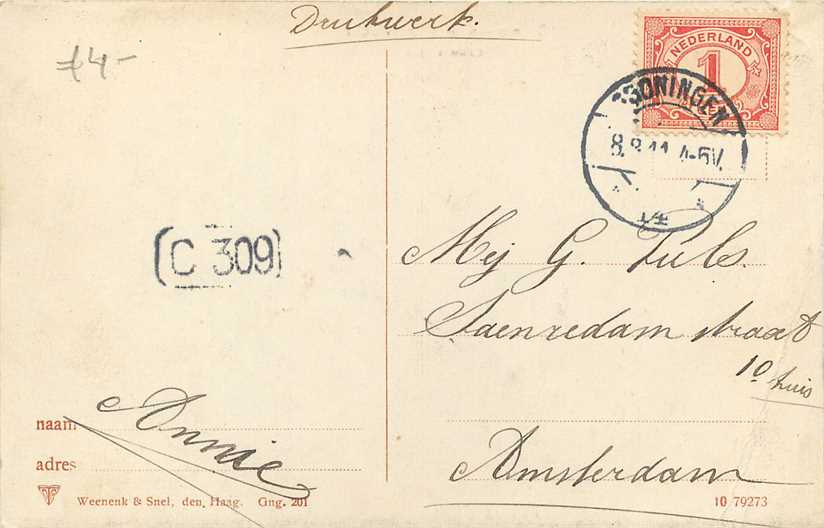 Drukwerk.
£4-
NEDERLAND
1
GRONINGEN
8.8.11 4-5V.
14
(C 309)
Mej G. Puls.
Saenredam straat
10 huis
Amsterdam
naam Annie
adres
Weenenk & Snel, den Haag. Gng. 201
10 79273